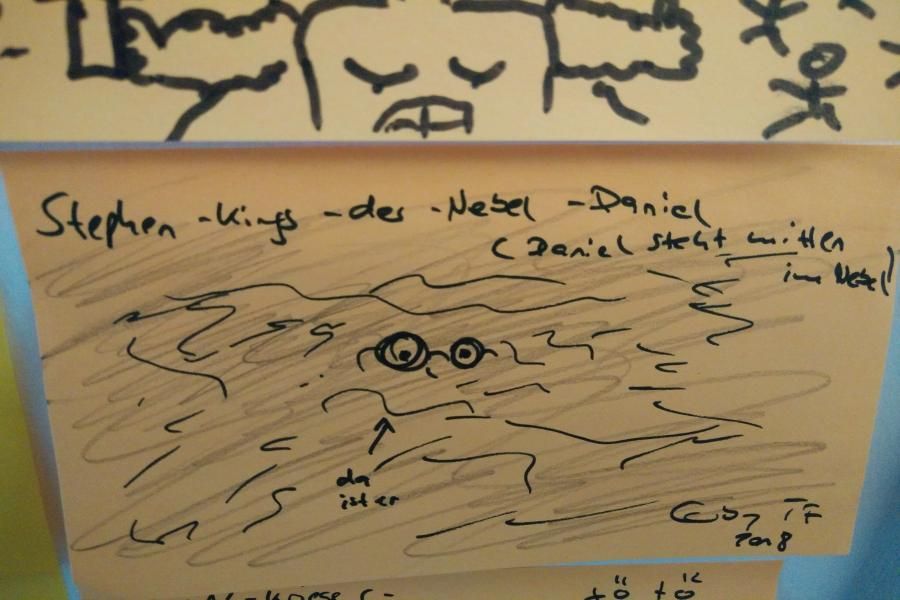 Stephen-Kings-der-Nebel-Daniel
(Daniel steht mitten
im Nebel)
da
ist er
by TF
2018